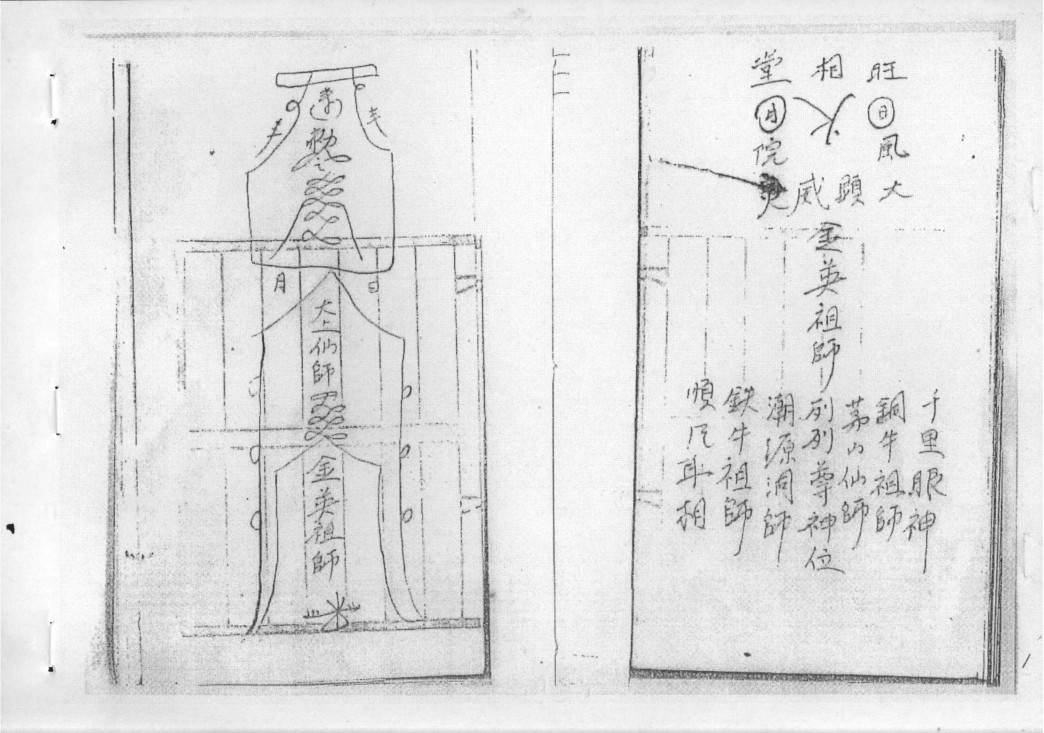 旺日風
相火
堂月院
大顯威靈
金英祖師列列尊神位
千里眼神
銅牛祖師
茅山仙師
潮源洞師
鉄牛祖師
順风耳相
勅令
月
日
太上仙師
金英祖師